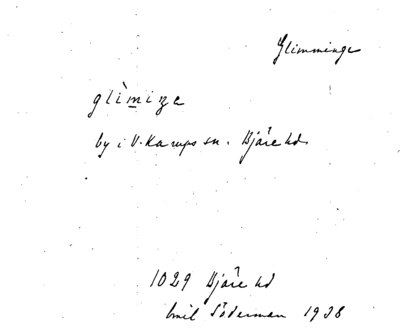 Glimminge
glìmiŋe
by i V. Karups sn. Bjäre hd
1029 Bjäre hd
Emil Söderman 1938